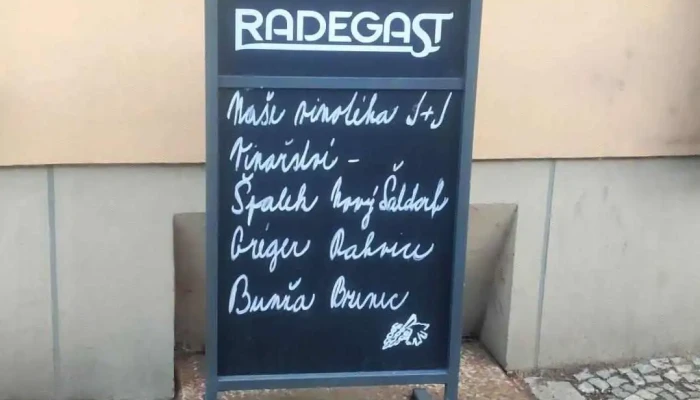 RADEGAST
Naše vinotéka J+J
Vinařství -
Špalek Nový Šaldorf
Gréger Rakvice
Bunža Brunic